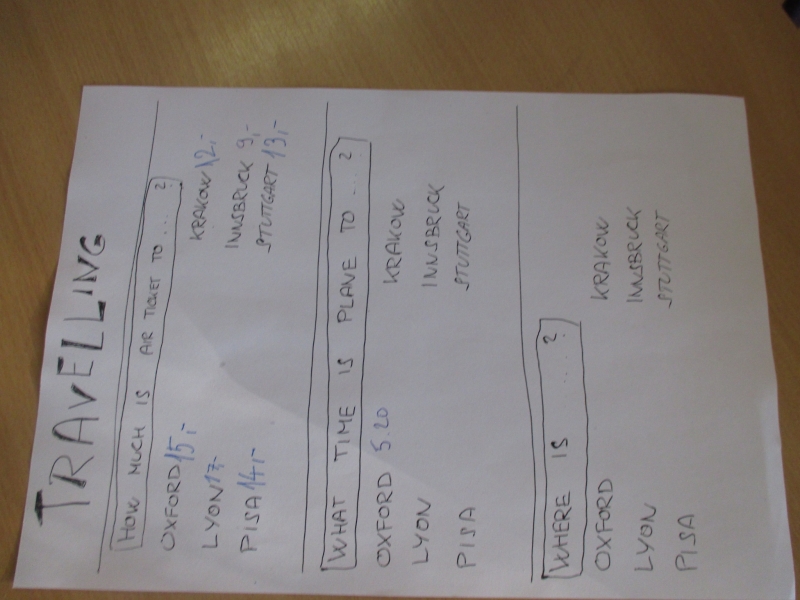 TRAVELLING
HOW MUCH IS AIR TICKET TO .... ?
OXFORD 15,- KRAKOW 12,-
LYON 17,- INNSBRUCK 9,-
PISA 14,- STUTTGART 13,-
WHAT TIME IS PLANE TO .... ?
OXFORD 5.20 KRAKOW
LYON INNSBRUCK
PISA STUTTGART
WHERE IS .... ?
OXFORD KRAKOW
LYON INNSBRUCK
PISA STUTTGART